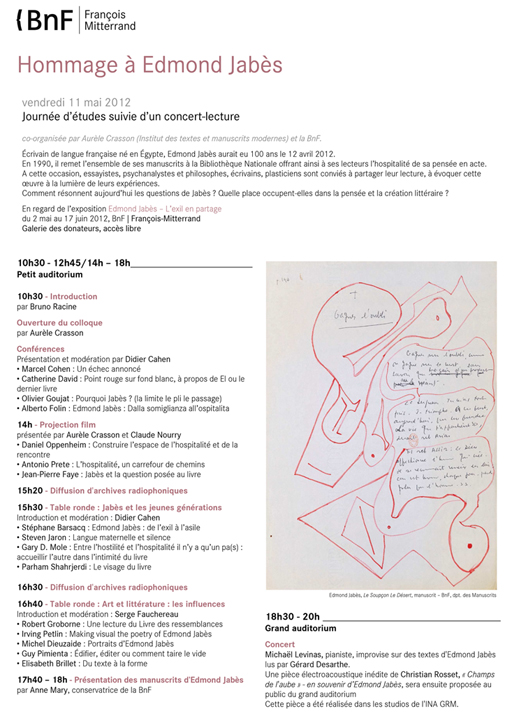 BnF
François
Mitterrand
Hommage à Edmond Jabès
vendredi 11 mai 2012
Journée d'études suivie d'un concert-lecture
co-organisée par Aurèle Crasson (Institut des textes et manuscrits modernes) et la BnF.
Écrivain de langue française né en Égypte, Edmond Jabès aurait eu 100 ans le 12 avril 2012.
En 1990, il remet l'ensemble de ses manuscrits à la Bibliothèque Nationale offrant ainsi à ses lecteurs l'hospitalité de sa pensée en acte.
A cette occasion, essayistes, psychanalystes et philosophes, écrivains, plasticiens sont conviés à partager leur lecture, à évoquer cette
œuvre à la lumière de leurs expériences.
Comment résonnent aujourd'hui les questions de Jabès ? Quelle place occupent-elles dans la pensée et la création littéraire ?
En regard de l'exposition Edmond Jabès – L'exil en partage
du 2 mai au 17 juin 2012, BnF | François-Mitterrand
Galerie des donateurs, accès libre
10h30 - 12h45/14h – 18h
Petit auditorium
10h30 - Introduction
par Bruno Racine
Ouverture du colloque
par Aurèle Crasson
Conférences
Présentation et modération par Didier Cahen
• Marcel Cohen : Un échec annoncé
• Catherine David : Point rouge sur fond blanc, à propos de El ou le
dernier livre
• Olivier Goujat : Pourquoi Jabès ? (la limite le pli le passage)
• Alberto Folin : Edmond Jabès : Dalla somiglianza all'ospitalita
14h - Projection film
présentée par Aurèle Crasson et Claude Nourry
• Daniel Oppenheim : Construire l'espace de l'hospitalité et de la
rencontre
• Antonio Prete : L'hospitalité, un carrefour de chemins
• Jean-Pierre Faye : Jabès et la question posée au livre
15h20 - Diffusion d'archives radiophoniques
15h30 - Table ronde : Jabès et les jeunes générations
Introduction et modération : Didier Cahen
• Stéphane Barsacq : Edmond Jabès : de l'exil à l'asile
• Steven Jaron : Langue maternelle et silence
• Gary D. Mole : Entre l'hostilité et l'hospitalité il n'y a qu'un pa(s) :
accueillir l'autre dans l'intimité du livre
• Parham Shahrjerdi : Le visage du livre
16h30 - Diffusion d'archives radiophoniques
16h40 - Table ronde : Art et littérature : les influences
Introduction et modération : Serge Fauchereau
• Robert Groborne : Une lecture du Livre des ressemblances
• Irving Petlin : Making visual the poetry of Edmond Jabès
• Michel Dieuzaide : Portraits d'Edmond Jabès
• Guy Pimienta : Édifier, éditer ou comment taire le vide
• Elisabeth Brillet : Du texte à la forme
17h40 – 18h - Présentation des manuscrits d'Edmond Jabès
par Anne Mary, conservatrice de la BnF
Edmond Jabès, Le Soupçon Le Désert, manuscrit – BnF, dpt. des Manuscrits
18h30 - 20h
Grand auditorium
Concert
Michaël Levinas, pianiste, improvise sur des textes d'Edmond Jabès
lus par Gérard Desarthe.
Une pièce électroacoustique inédite de Christian Rosset, « Champs
de l'aube » - en souvenir d'Edmond Jabès, sera ensuite proposée au
public du grand auditorium
Cette pièce a été réalisée dans les studios de l'INA GRM.